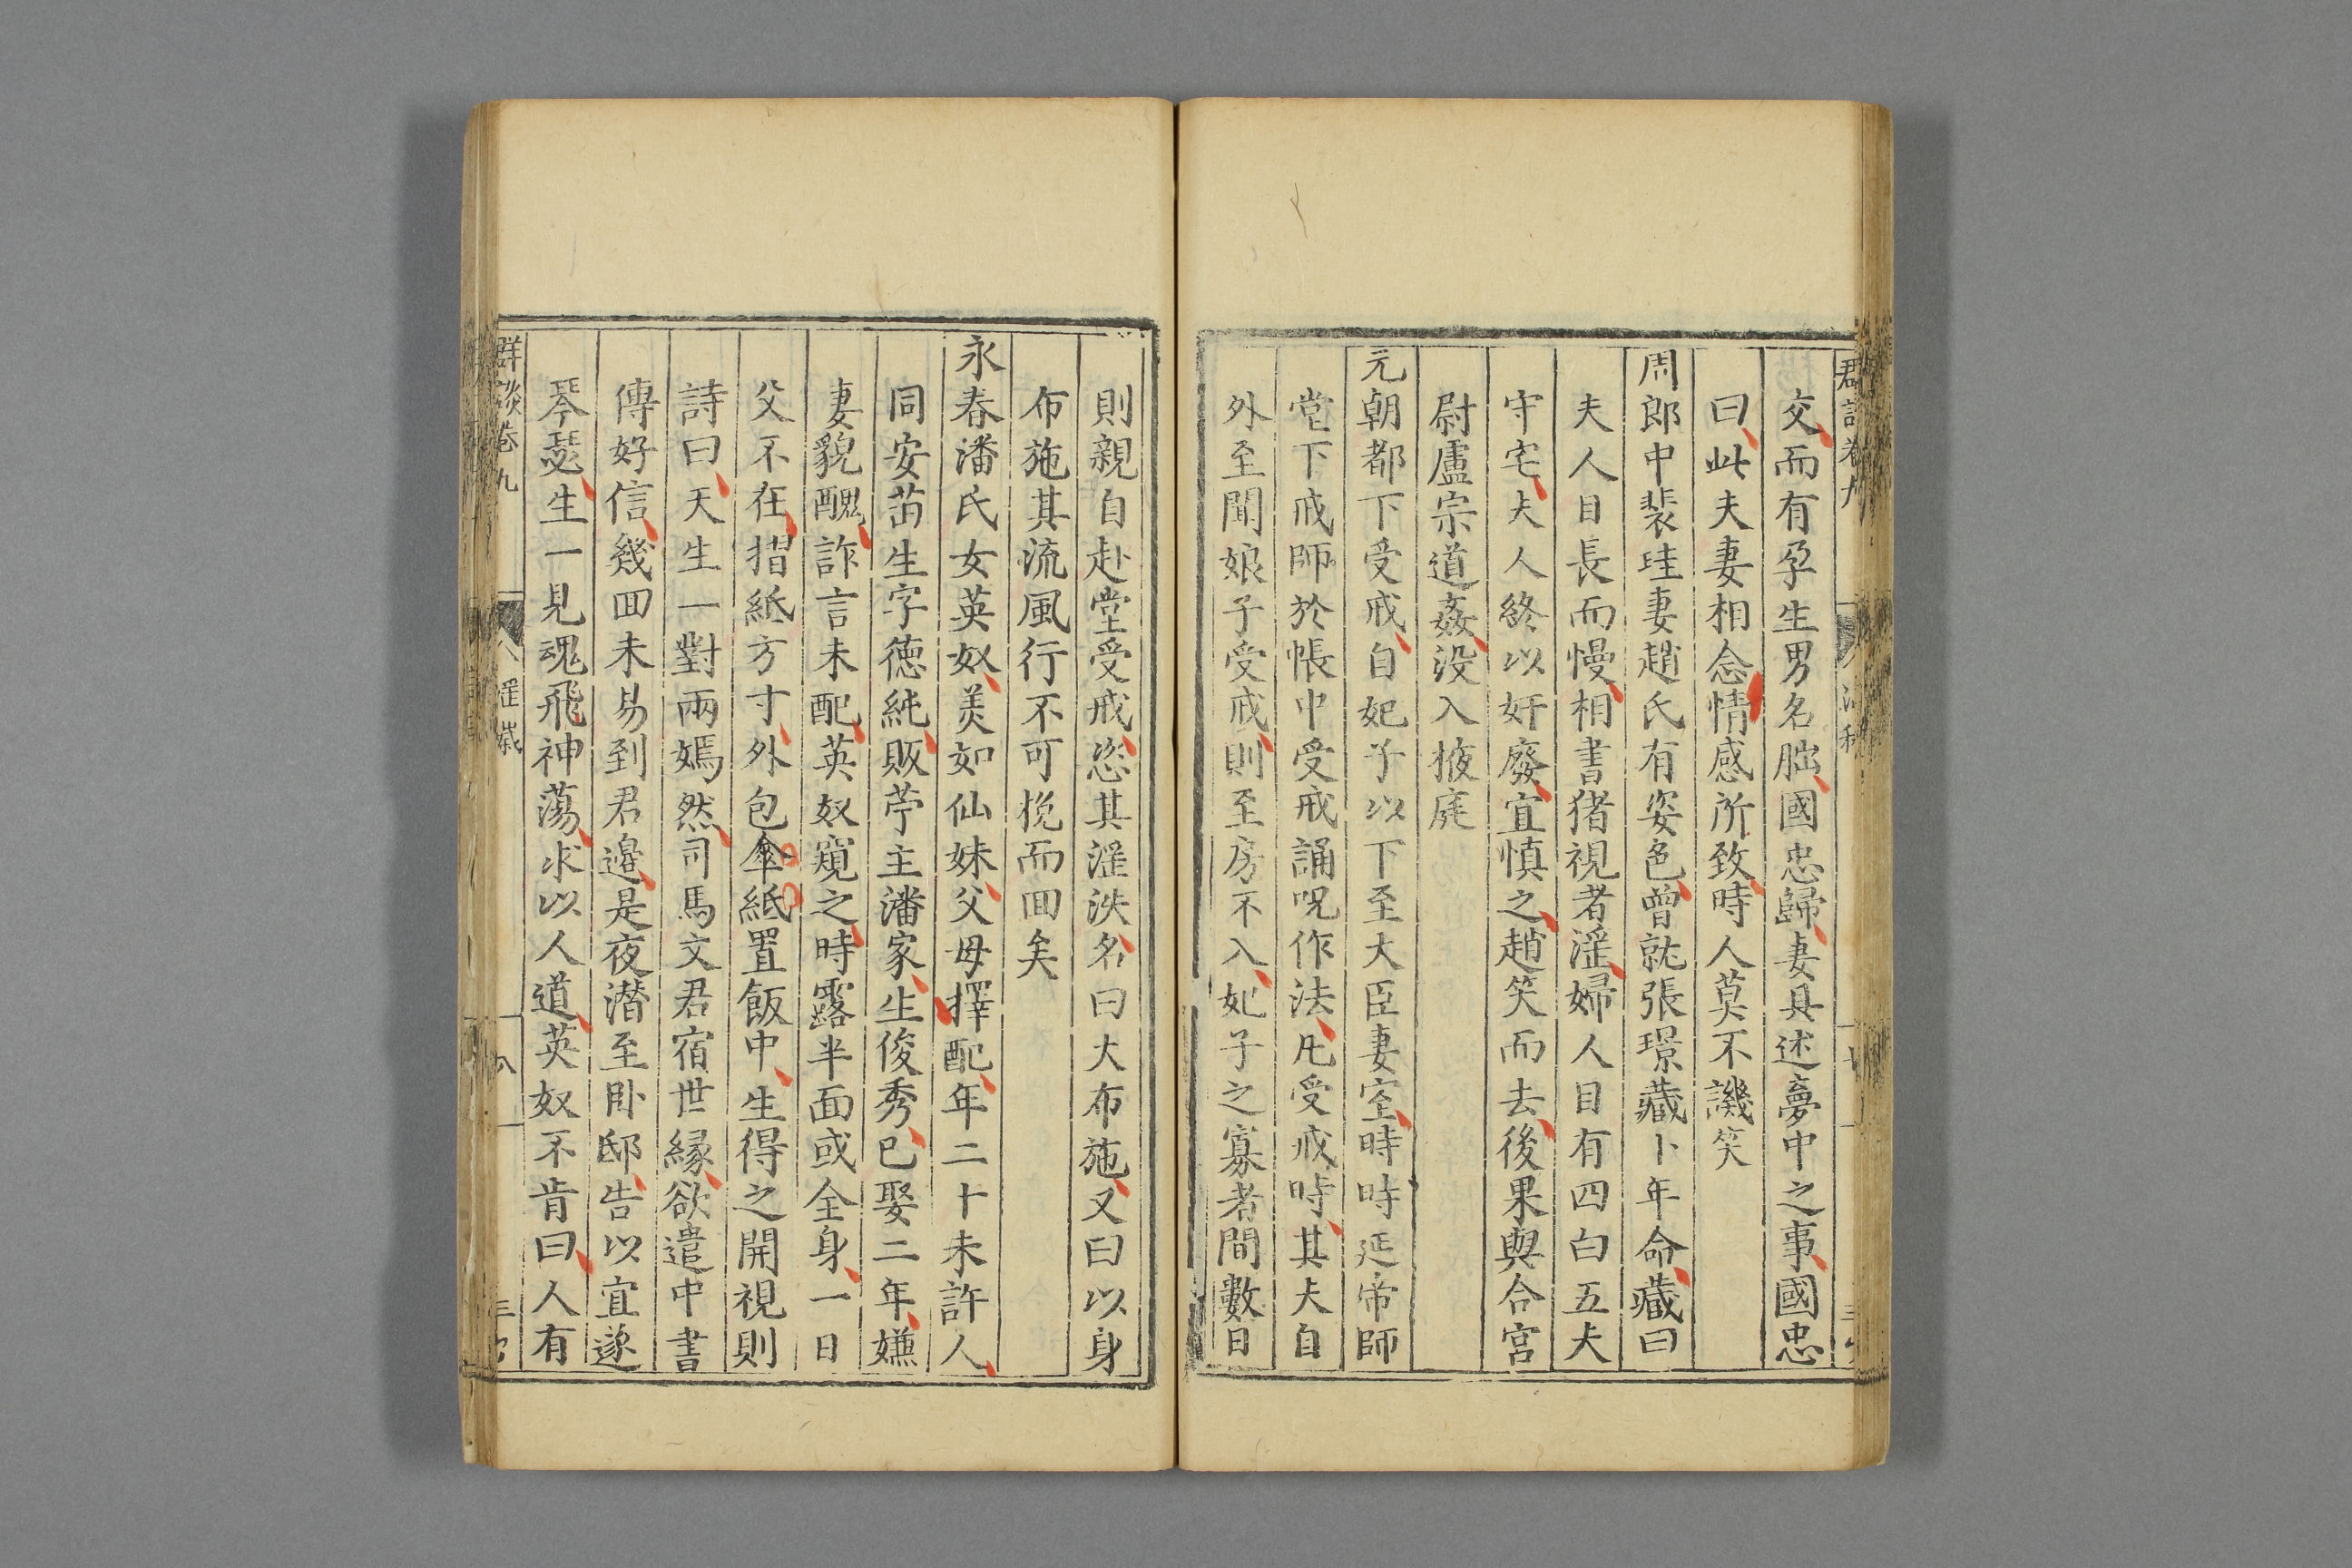 交而有孕生男名朏國忠歸妻具述夢中之事國忠
曰此夫妻相念情感所致時人莫不譏笑
周郎中裴珪妻趙氏有姿色曾就張璟藏卜年命藏曰
夫人目長而慢相書猪視者淫婦人目有四白五夫
守宅夫人終以奸廢宜慎之趙笑而去後果與合宮
尉盧宗道姦没入掖庭
元朝都下受戒自妃子以下至大臣妻室時時延帝師
堂下戒師於帳中受戒誦呪作法凡受戒時其夫自
外至聞娘子受戒則至房不入妃子之寡者間數日
則親自赴堂受戒恣其淫泆名曰大布施又曰以身
布施其流風行不可挽而回矣
永春潘氏女英奴美如仙妹父母擇配年二十未許人
同安茁生字德純販苧主潘家生俊秀已娶二年嫌
妻貌醜詐言未配英奴窺之時露半面或全身一日
父不在摺紙方寸外包傘紙置飯中生得之開視則
詩曰天生一對兩嫣然司馬文君宿世緣欲遣中書
傳好信幾回未易到君邊是夜潜至卧邸告以宜遂
琴瑟生一見魂飛神蕩求以人道英奴不肯曰人有
群談卷九
八